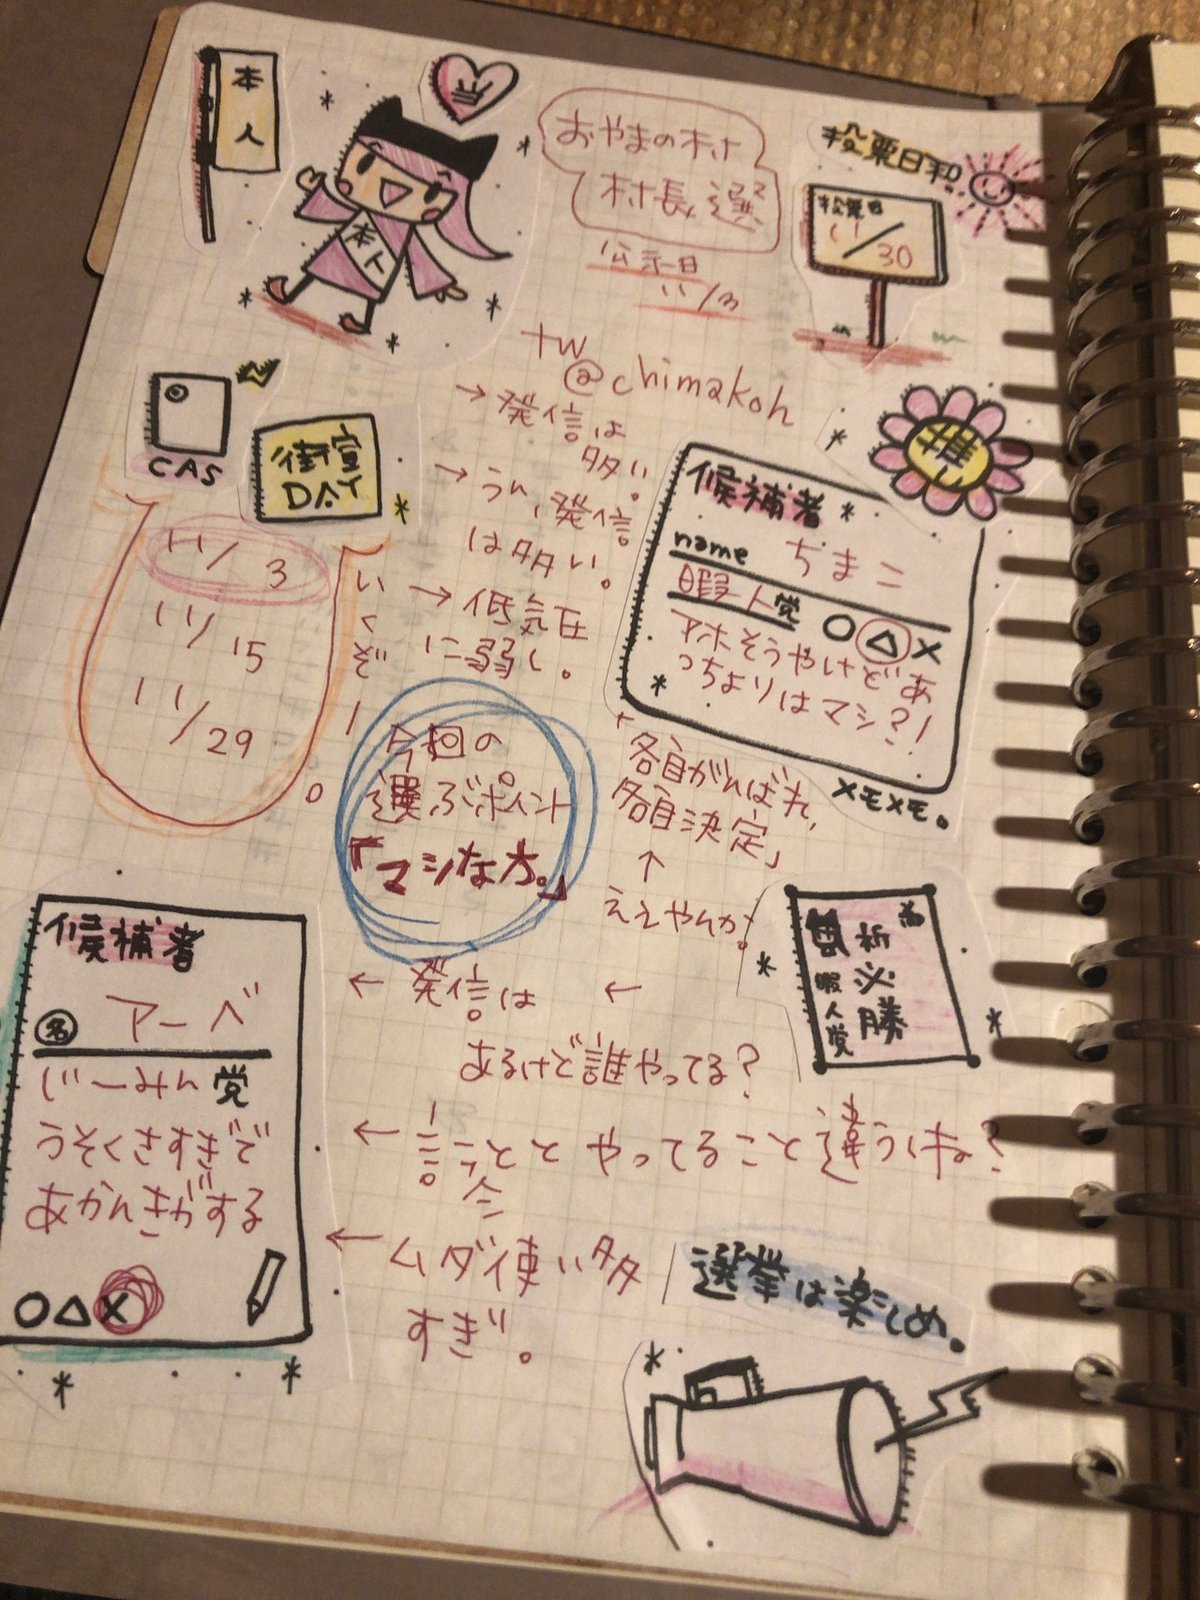 本人
本人
おやまの村
村長選
公示日
11/3
投票日和!
投票日
11/30
tw
@chimakoh
→発信は
多い。
→うん、発信
は多い。
→低気圧
に弱し。
CAS
街宣
DAY
11/3
11/15
11/29
いくぞー。
推し
候補者
name ちまこ
暇人党 ○△×
アホそうやけどあ
っちよりはマシ?!
メモメモ。
今回の
選ぶポイント
『マシな方。』
「各自がんばれ,
各自決定」
↑
ええやんか。
祈必勝
暇人党
候補者
名 アーベ
じーみん党
うそくさすぎで
あかんきがする
○△×
← 発信は ←
あるけど誰やってる?
← 言うこととやってること違うくね?
← ムダ使い多
すぎ。
選挙は楽しめ。